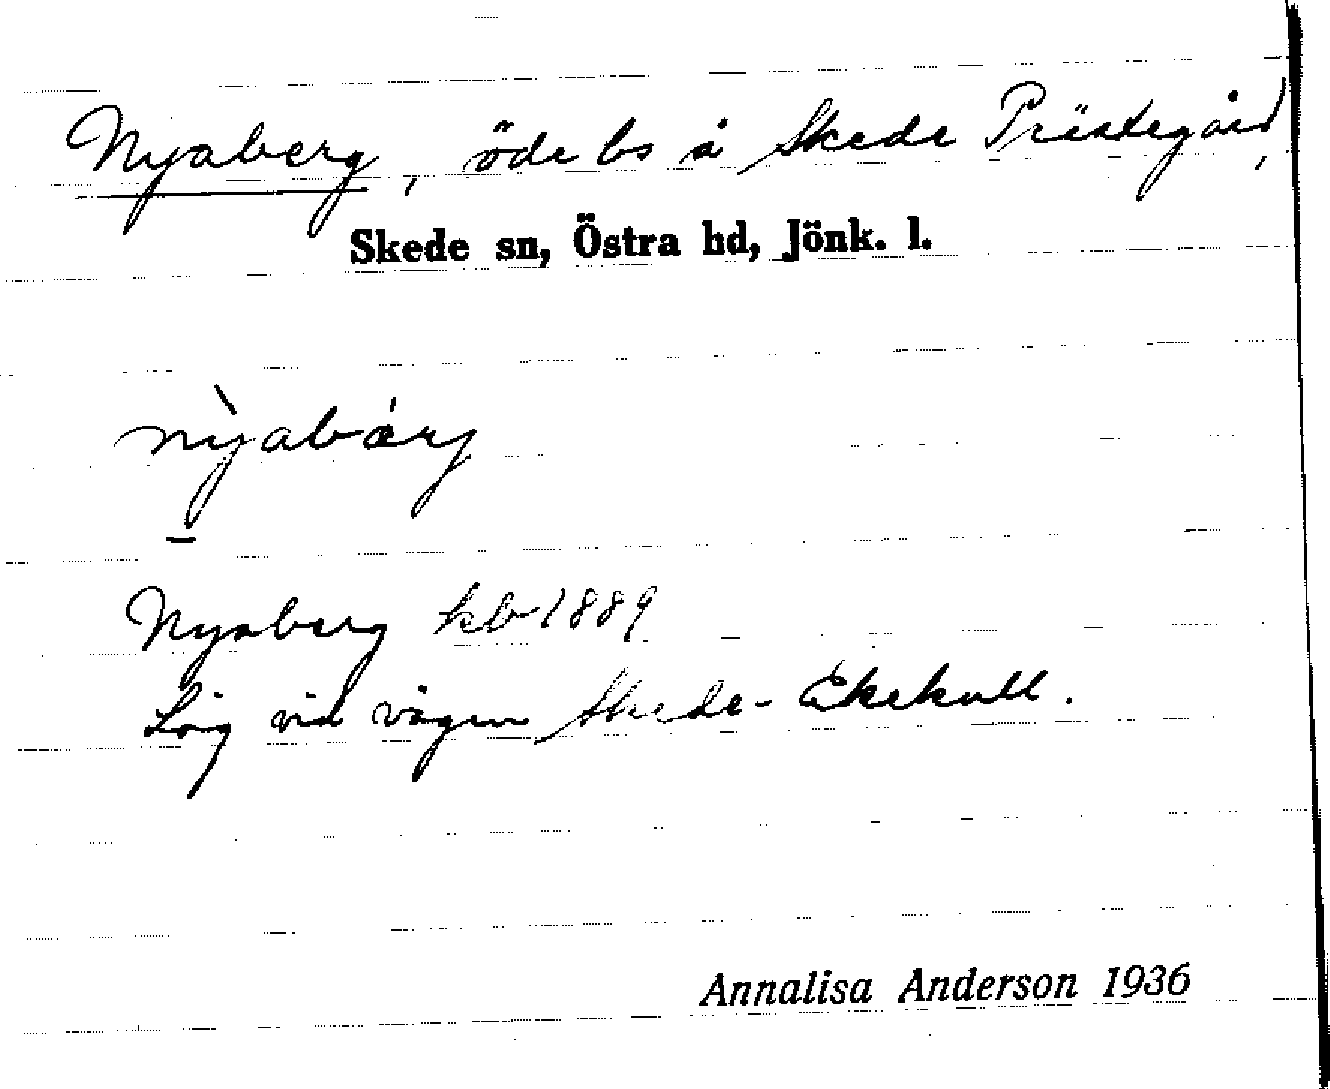 Nyaberg, öde bs å Skede Prästegård,
Skede sn, Östra hd, Jönk. l.
nỳabárj
Nyaberg kb 1889
Låg vid vägen Skede-Ekekull.
Annalisa Anderson 1936